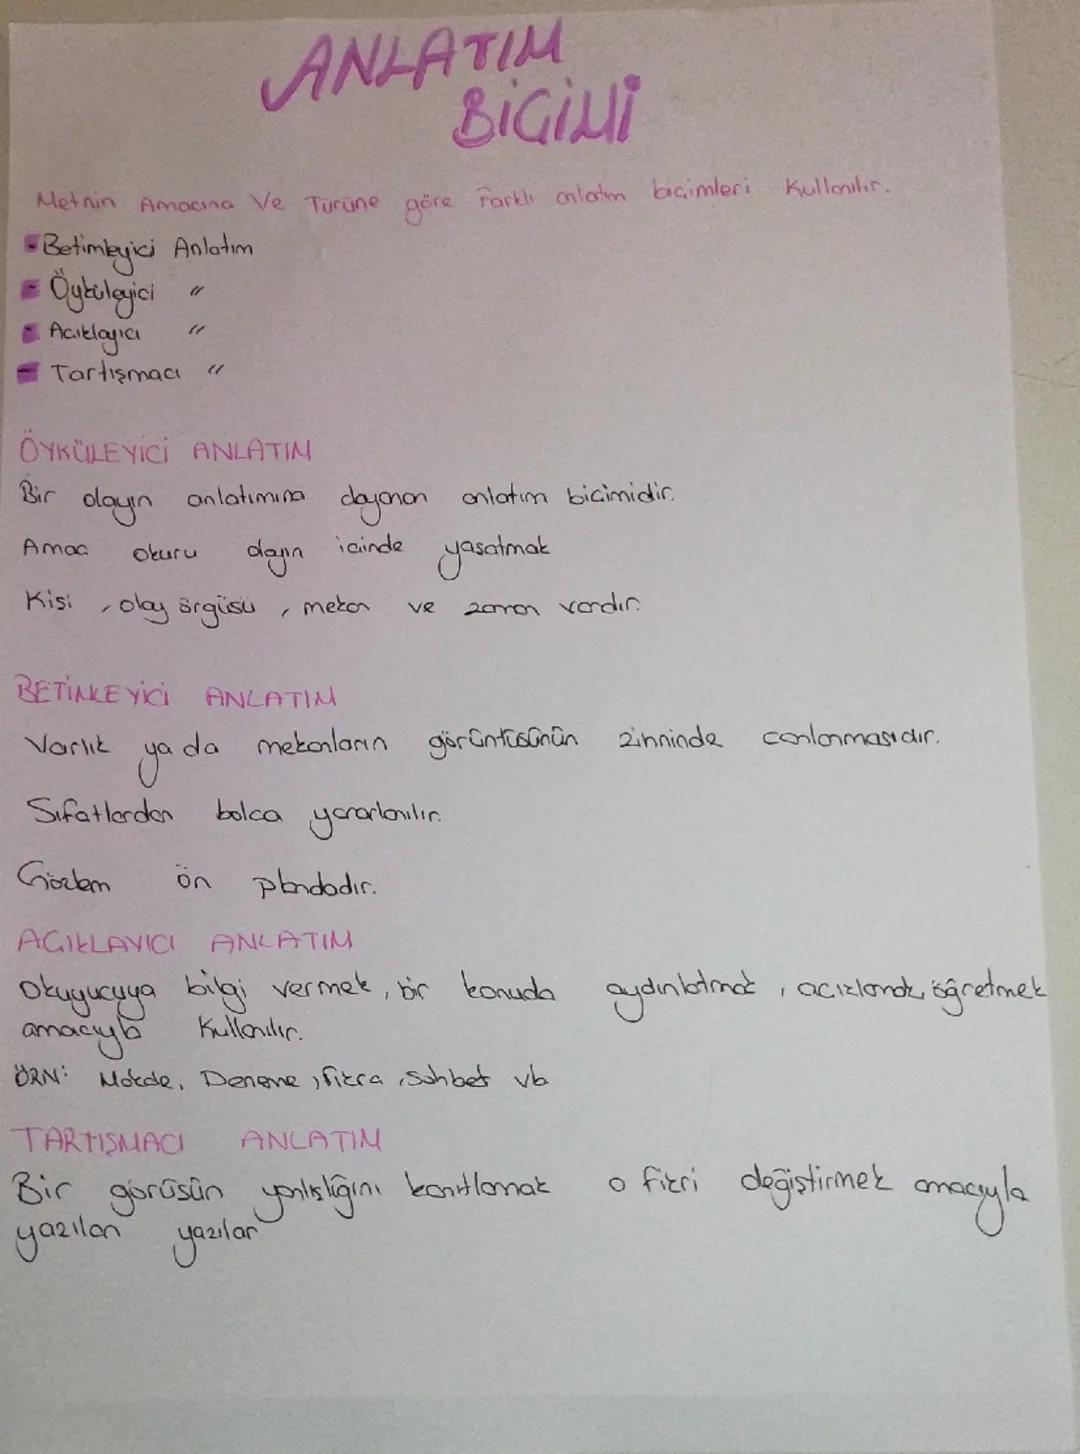 ANLATIM
BİÇİMİ
Metnin Amacına Ve Türüne göre Farklı anlatım biçimleri Kullanılır.
- Betimleyici Anlatım
- Öyküleyici "
- Acıklayıcı "
- Tartışmacı "
ÖYKÜLEYİCİ ANLATIM
Bir olayın anlatımına dayanan anlatım bicimidir.
Amac okuru olayın icinde yasatmak
Kisi, olay örgüsü, mekan ve zaman vardır.
BETİMLEYİCİ ANLATIM
Varlık ya da mekanların görüntüsünün zihninde canlanmasıdır.
Sıfatlardan bolca yararlanılır.
Gözlem ön plandadır.
ACIKLAYICI ANLATIM
Okuyucuya bilgi vermek, bir konuda aydınlatmak, acıklamak, öğretmek
amacıyla Kullanılır.
ÖRN: Makale, Deneme, fıkra, Sohbet vb
TARTIŞMACI ANLATIM
Bir görüsün yanlışlığını kanıtlamak o fikri değiştirmek amacıyla
yazılan yazılar